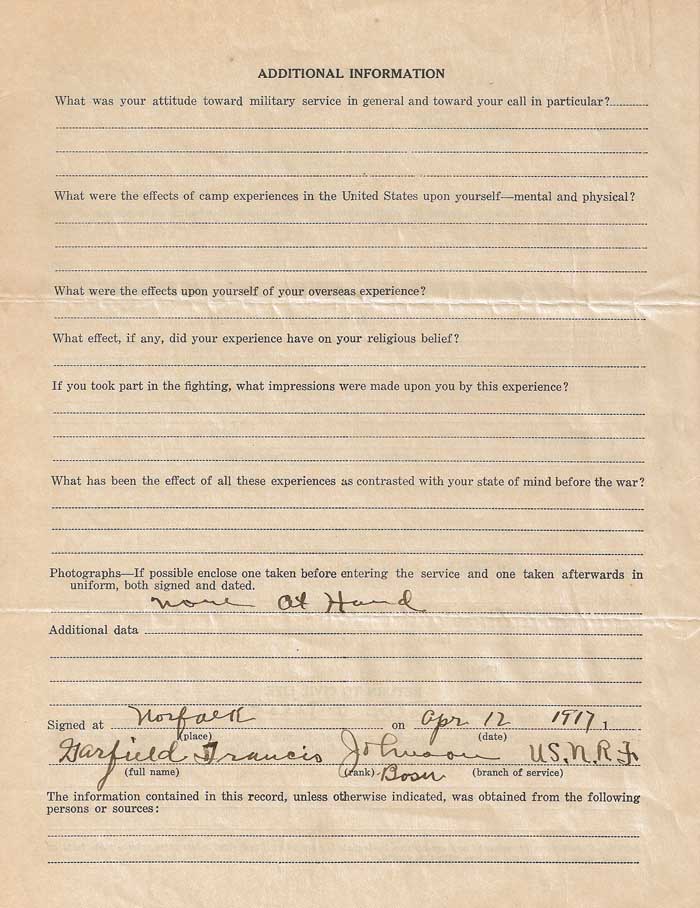 ADDITIONAL INFORMATION
What was your attitude toward military service in general and toward your call in particular?
What were the effects of camp experiences in the United States upon yourself—mental and physical?
What were the effects upon yourself of your overseas experience?
What effect, if any, did your experience have on your religious belief?
If you took part in the fighting, what impressions were made upon you by this experience?
What has been the effect of all these experiences as contrasted with your state of mind before the war?
Photographs—If possible enclose one taken before entering the service and one taken afterwards in
uniform, both signed and dated.
none At Hand
Additional data
Signed at Norfolk on Apr 12 1917 1
(place) (date)
Garfield Francis Johnson U.S.N.R.F.
(full name) (rank) Bosn (branch of service)
The information contained in this record, unless otherwise indicated, was obtained from the following
persons or sources: